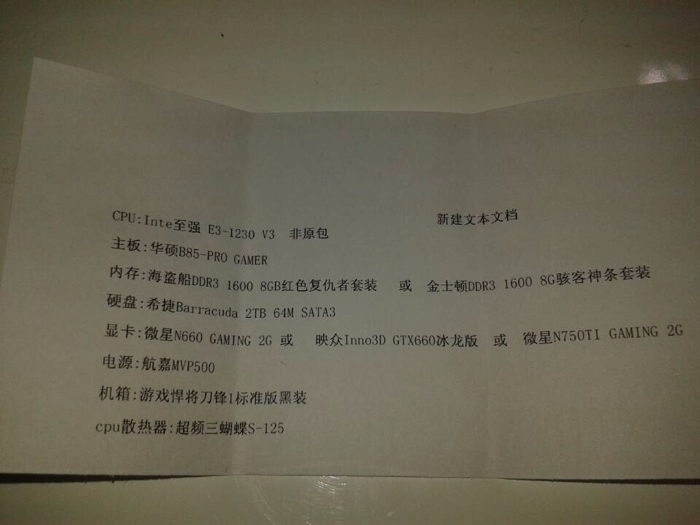 新建文本文档
CPU:Inte至强 E3-1230 V3 非原包
主板:华硕B85-PRO GAMER
内存:海盗船DDR3 1600 8GB红色复仇者套装 或 金士顿DDR3 1600 8G骇客神条套装
硬盘:希捷Barracuda 2TB 64M SATA3
显卡:微星N660 GAMING 2G 或 映众Inno3D GTX660冰龙版 或 微星N750TI GAMING 2G
电源:航嘉MVP500
机箱:游戏悍将刀锋1标准版黑装
cpu散热器:超频三蝴蝶S-125